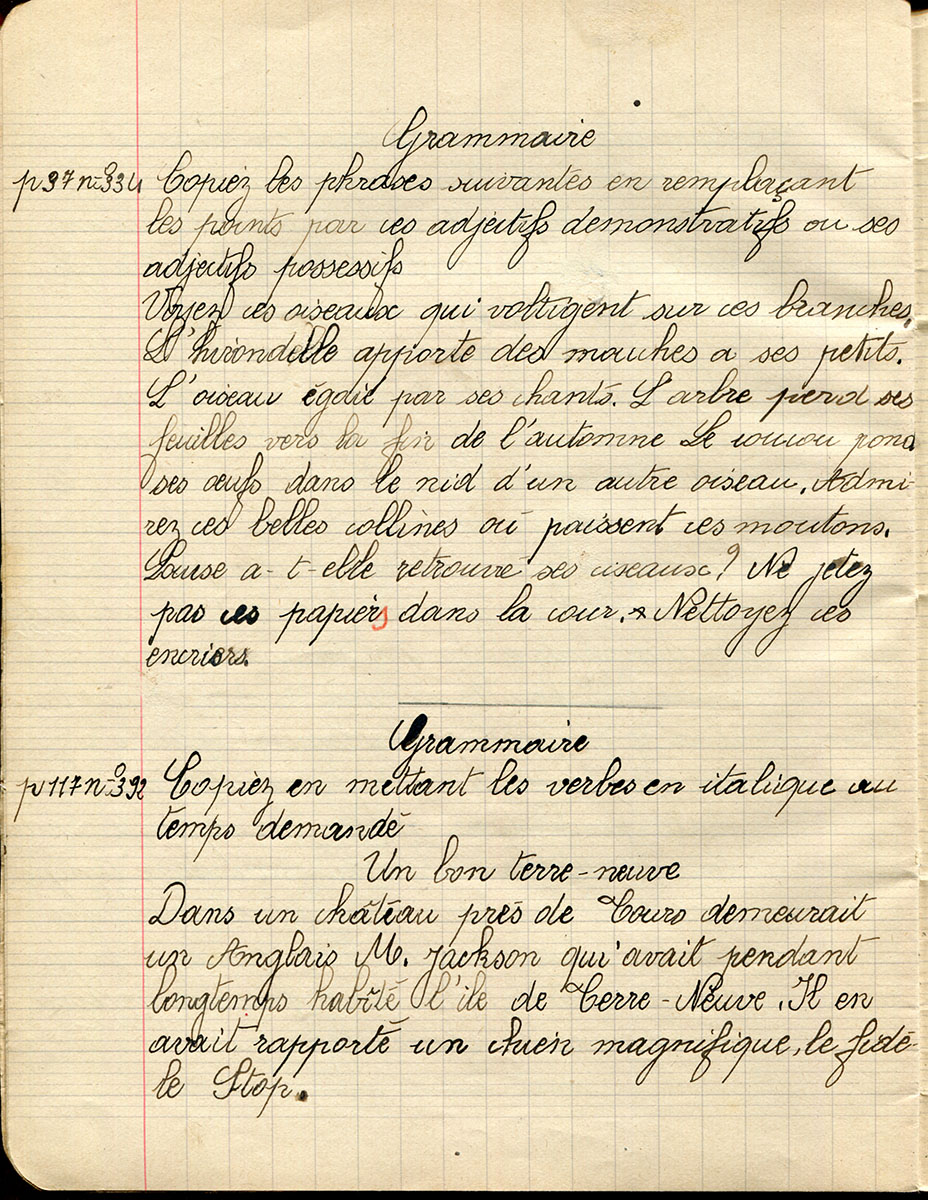 Grammaire
p 97 nº 334 Copiez les phrases suivantes en remplaçant
les points par ces adjectifs demonstratifs ou ses
adjectifs possessifs
Voyez ces oiseaux qui voltigent sur ces branches.
L'hirondelle apporte des mouches a ses petits.
L'oiseau égaie par ses chants. L arbre perd ses
feuilles vers la fin de l'automne Le coucou pond
ses œufs dans le nid d'un autre oiseau. Admi-
rez ces belles collines où paissent ces moutons.
Louise a-t-elle retrouvé ses ciseaux? Ne jetez
pas ces papiers dans la cour. Nettoyez ces
encriers.
Grammaire
p 117 nº 392 Copiez en mettant les verbes en italique au
temps demandé
Un bon terre-neuve
Dans un château près de Tours demeurait
un Anglais M. Jackson qui avait pendant
longtemps habité l'ile de Terre-Neuve. Il en
avait rapporté un chien magnifique, le fidè-
le Stop.